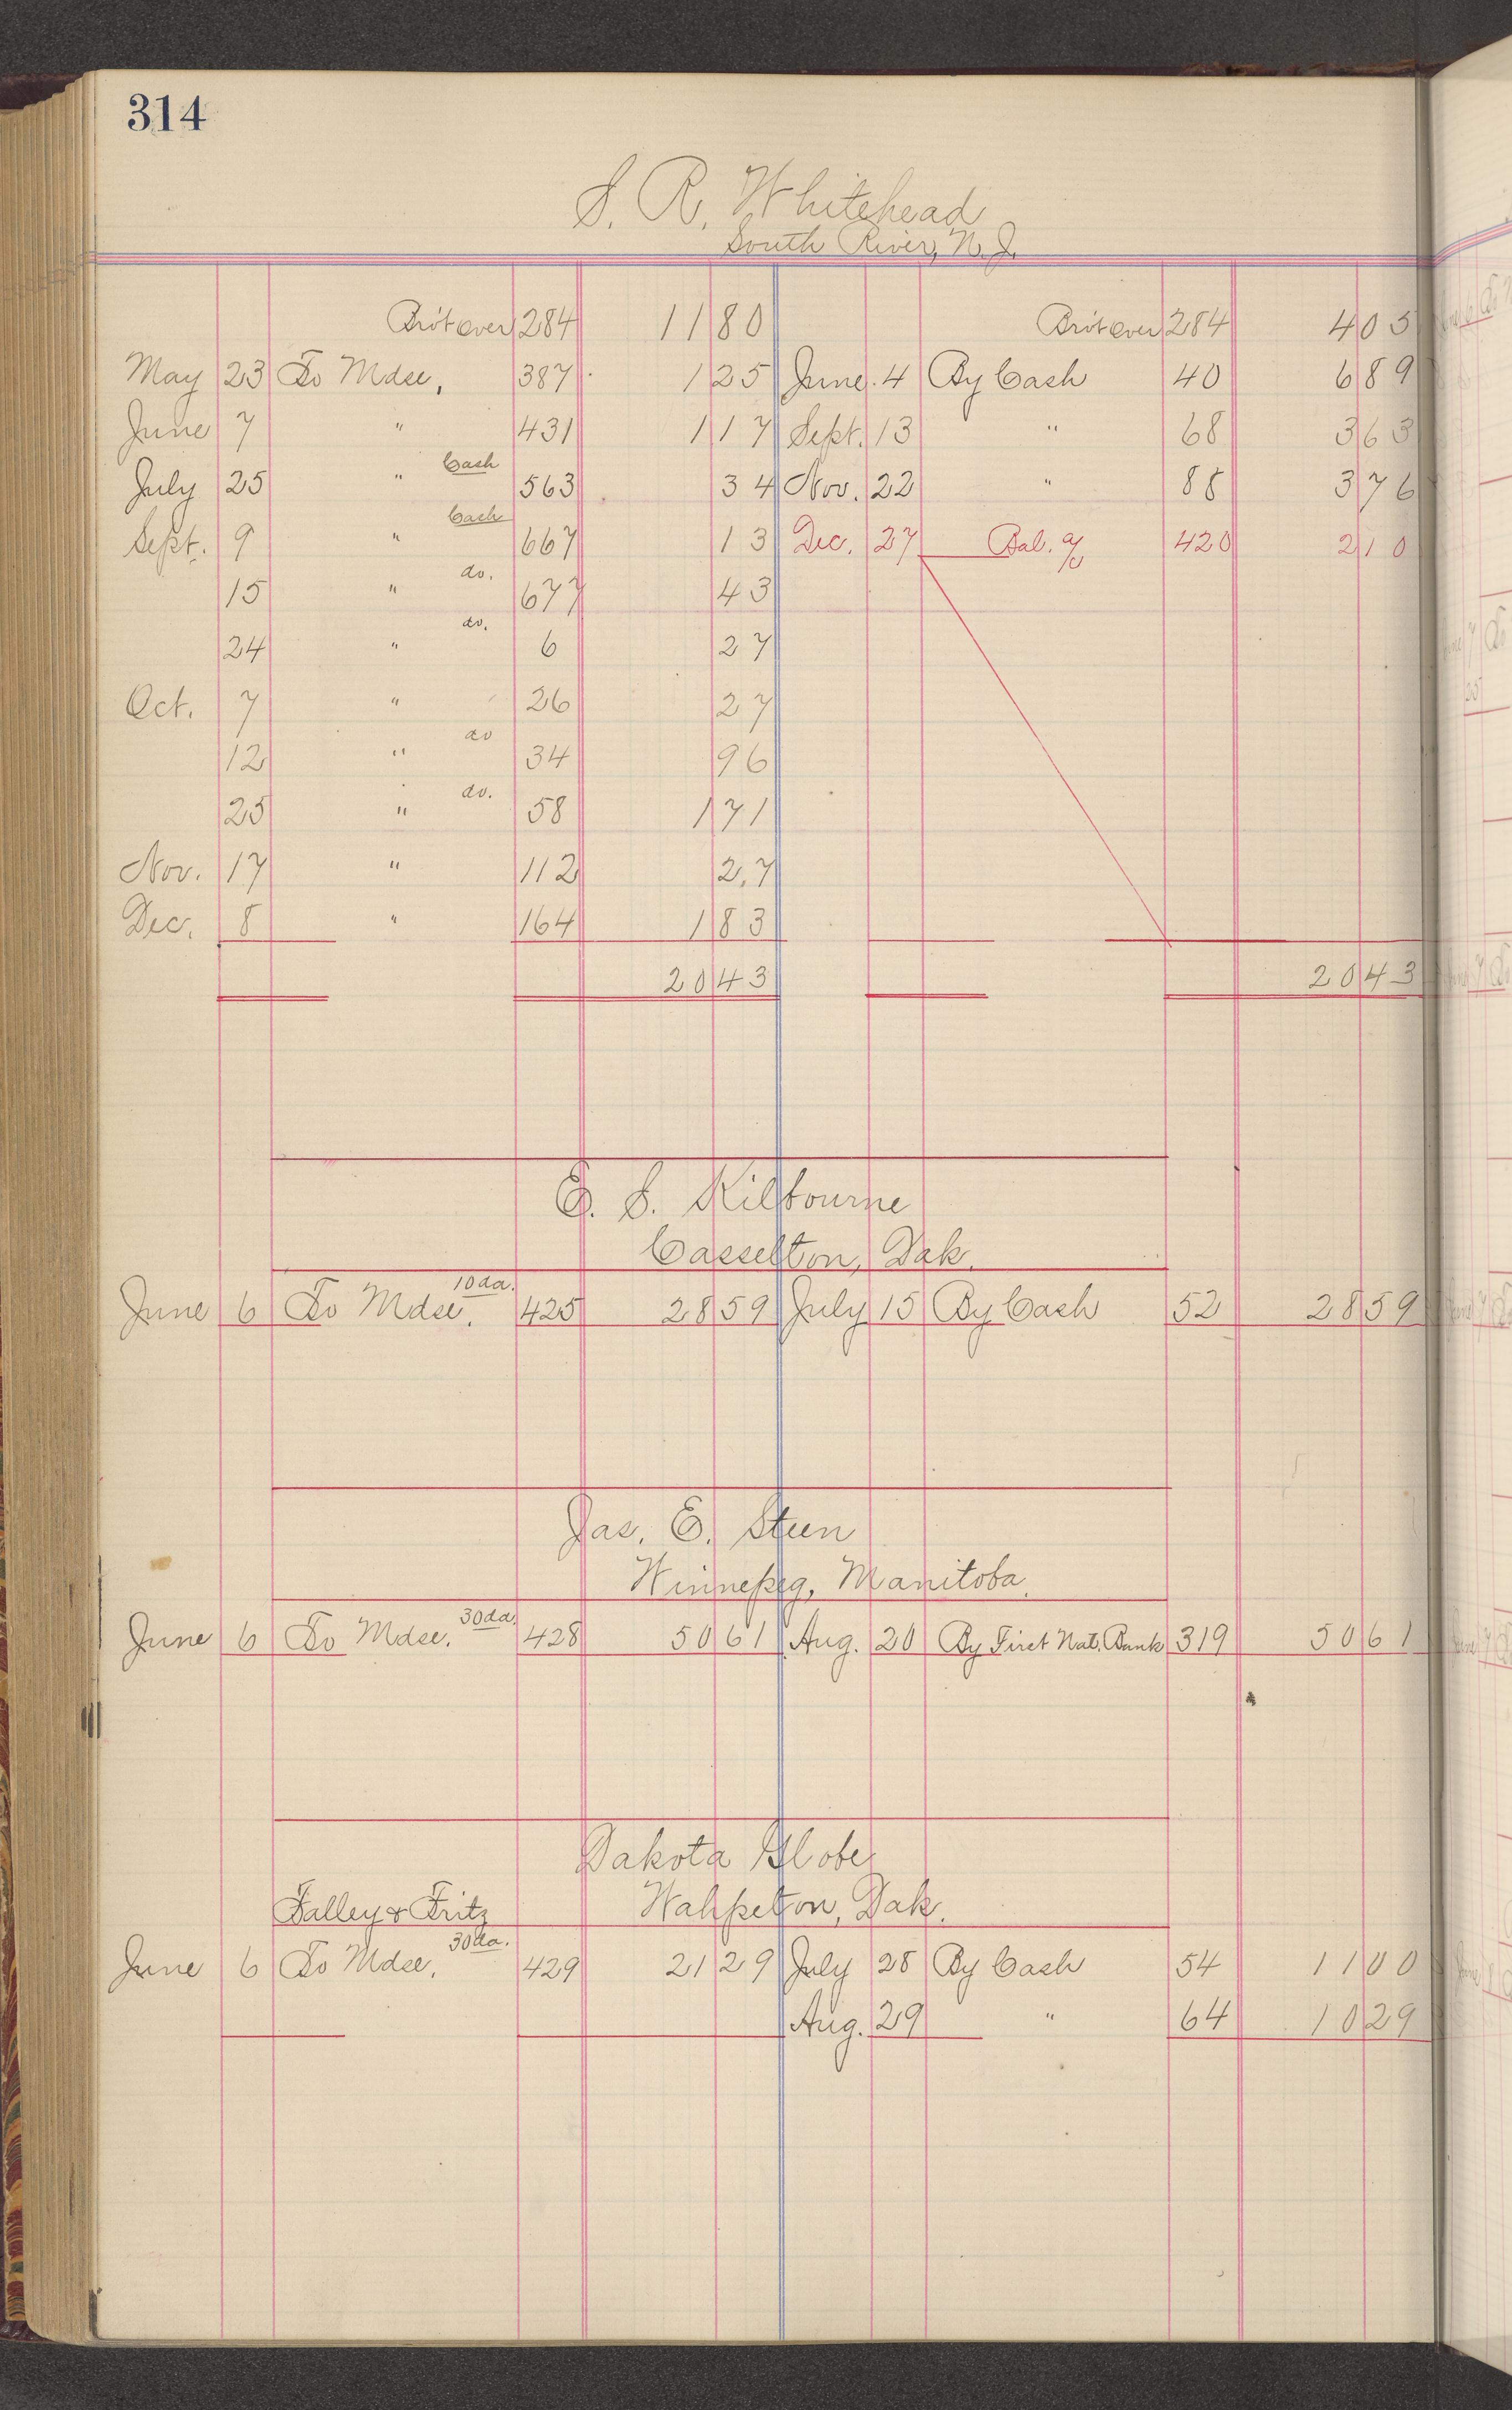 314
S. R. Whitehead
South River, N. J.
Bro't over 284 11 80 Bro't over 284 4 05
May 23 To Mdse, 387 1 25 June 4 By Cash 40 6 89
June 7 " 431 1 17 Sept. 13 " 68 3 63
July 25 " Cash 563 34 Nov. 22 " 88 3 76
Sept. 9 " Cash 667 13 Dec. 27 Bal. a/c 420 2 10
15 " do. 677 43
24 " do. 6 27
Oct. 7 " 26 27
12 " do 34 96
25 " do. 58 1 71
Nov. 17 " 112 2,7
Dec. 8 " 164 1 83
20 43 20 43
E. S. Kilbourne
Casselton, Dak.
June 6 To Mdse. 10 da. 425 28 59 July 15 By Cash 52 28 59
Jas. E. Steen
Winnepeg, Manitoba.
June 6 To Mdse. 30 da. 428 50 61 Aug. 20 By First Nat. Bank 319 50 61
Dakota Globe
Falley & Fritz Wahpeton, Dak.
June 6 To Mdse. 30 da. 429 21 29 July 28 By Cash 54 11 00
Aug. 29 " 64 10 29